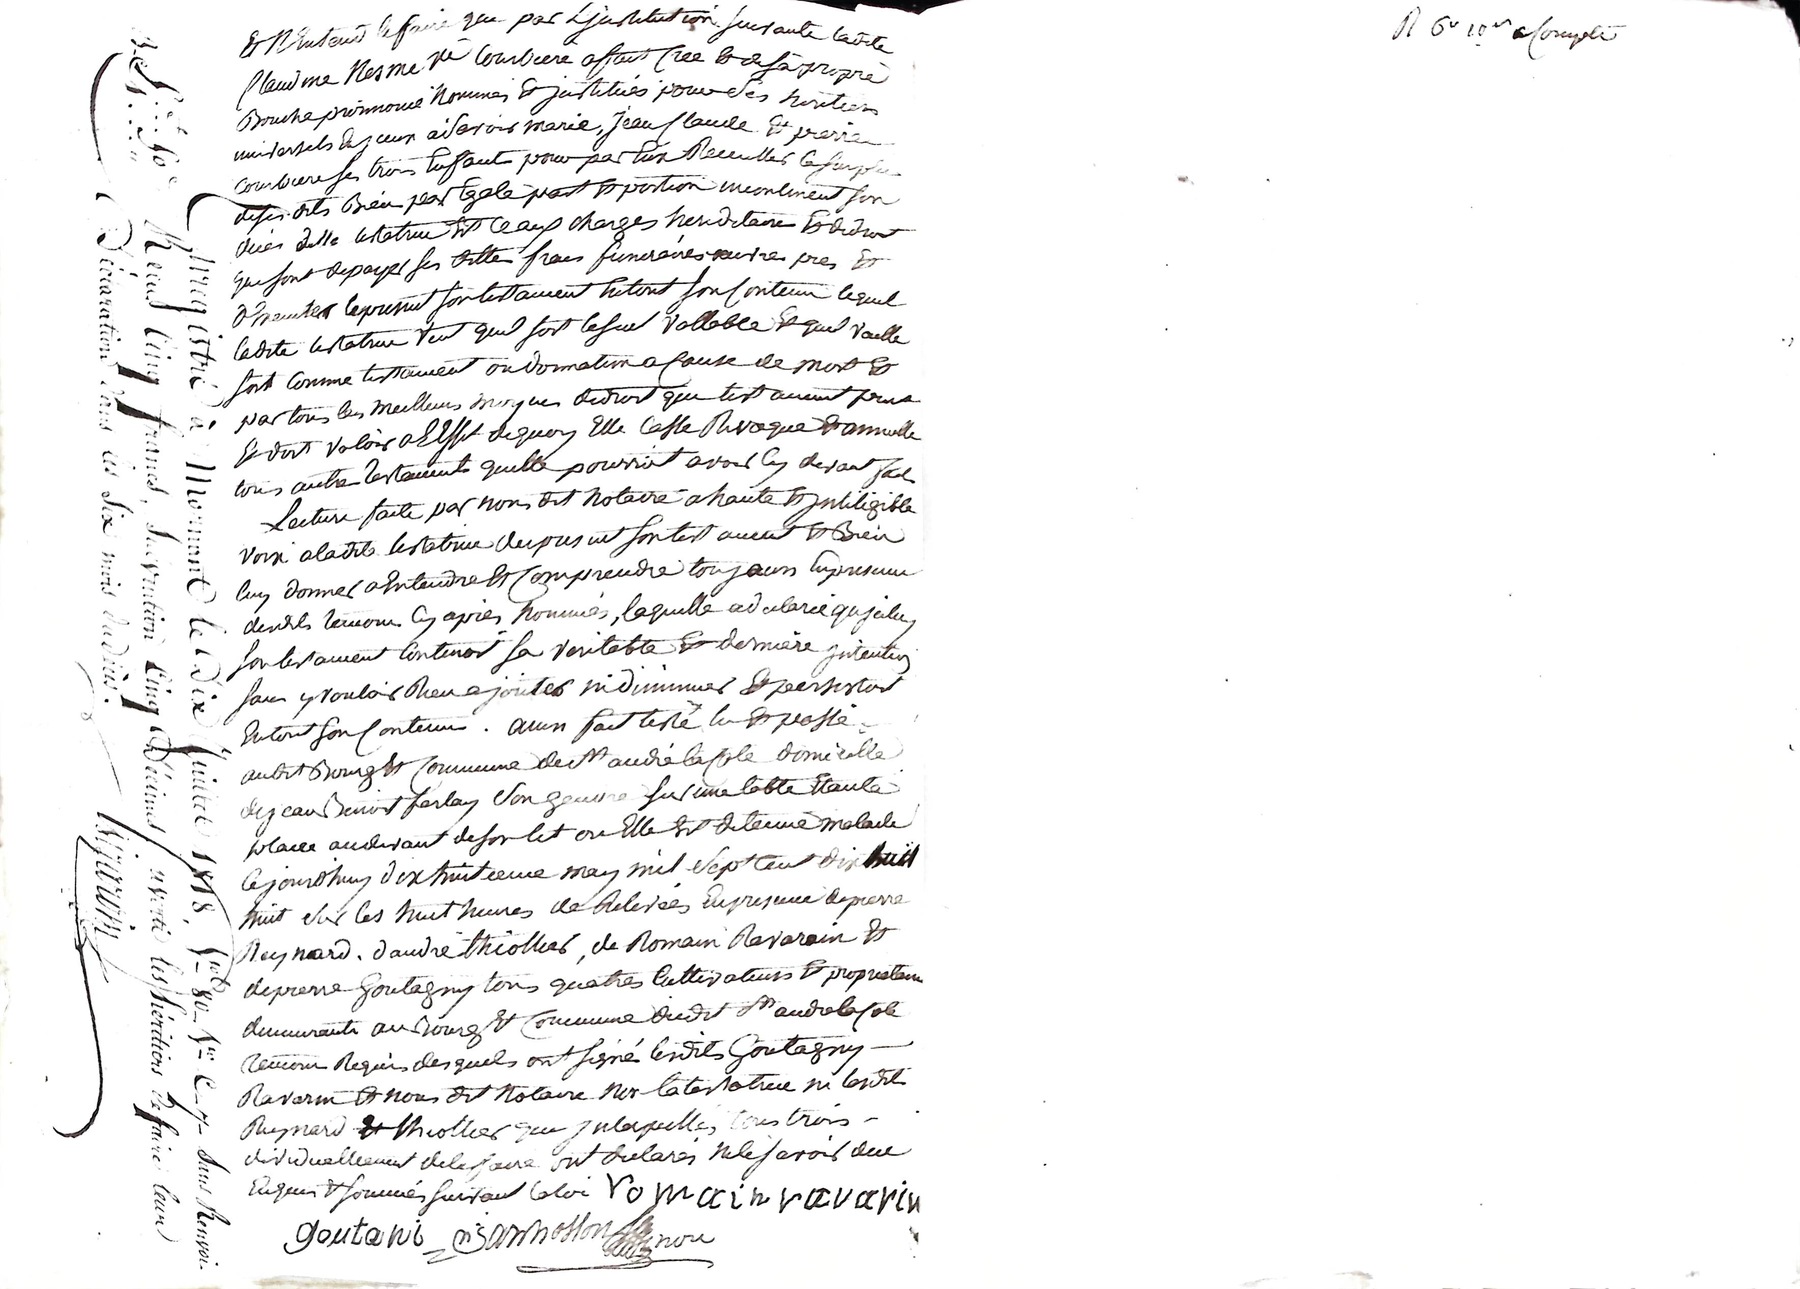 Et N'entend le faire que par L'justitution suivante ladite
Claudine Nesme vē Courbiere affait Cree Et desa propre
Bouche prononcé Nommés Et justitués pour Ses heritiers
universels Egaux asavoir marie, jean Claude Et pierre
Courbiere ses trois Enfants pour par Eux Recueiller le surplus
desesdits Bien par Egale part Et portion incontinent son
décés ditte testatrice Et Ce aux charges hereditaire Et didroit
qui sont depayer ses dittes frais funeraires œuvres pies Et
d'Executer lepresent son testament Entout son Contenu lequel
ladite testatrice veut quil soit lesuel vallable Et quil vaille
soit Comme testament ou donnation a Cause de mort Et
par tous les meilleurs moyens didroit que testament peut
Et doit valoir a Effet dequoy Elle Casse Revoque Et annulle
tous autre testaments quelle pourroit avoir Cy devant fait
Lecture faite par nous dit Notaire a haute Et jntiligible
voix a ladite testatrice du present son testament Et Bien
luy donner a Entendre Et Comprendre toujours En presence
desdits temoins Cy apres Nommés, laquelle a declaré quiceluy
son testament Contenoit sa veritable Et derniere jntention
sans y vouloir Rien ajouter ni diminuer Et persistant
Entout son Contenu. ainsi fait testé lu Et passé
audit Bourg Et Commune de St andré la Cote domicille
de jean Benoit ferlay Son gendre sur une table Etante
placée audevant deson lit ou Elle Est detenue malade
Cejourdhuy dix huitieme may mil Sept Cent dix huit
huit Sur les huit heures de Relevées En presence de pierre
Reynard. d'andré thiollier, de Romain Ravarin Et
de pierre Goutagny tous quatres Cultivateurs Et proprietaire
demeurants au Bourg Et Commune dudit St andré la Cote
temoins Requis desquels ont signé lesdits Goutagny
Ravarin Et nous dit Notaire Non la testatrice ni lesdits
Reynard Et thiollier que jnterpellés tous trois
dividuellement de le faire ont declarés Nele savoir due
Enquis Et sommés suivant la loi romain ravarin
goutani
Enregistré à Mornant le dix Juillet 1818, fo 80 Vo C. 7 Sans Renvoi
Reçu Cinq francs, Subvention Cinq Décimes averti les héritiers de faire leur
Déclaration dans les Six mois du décès.
R 6 10 a Compte